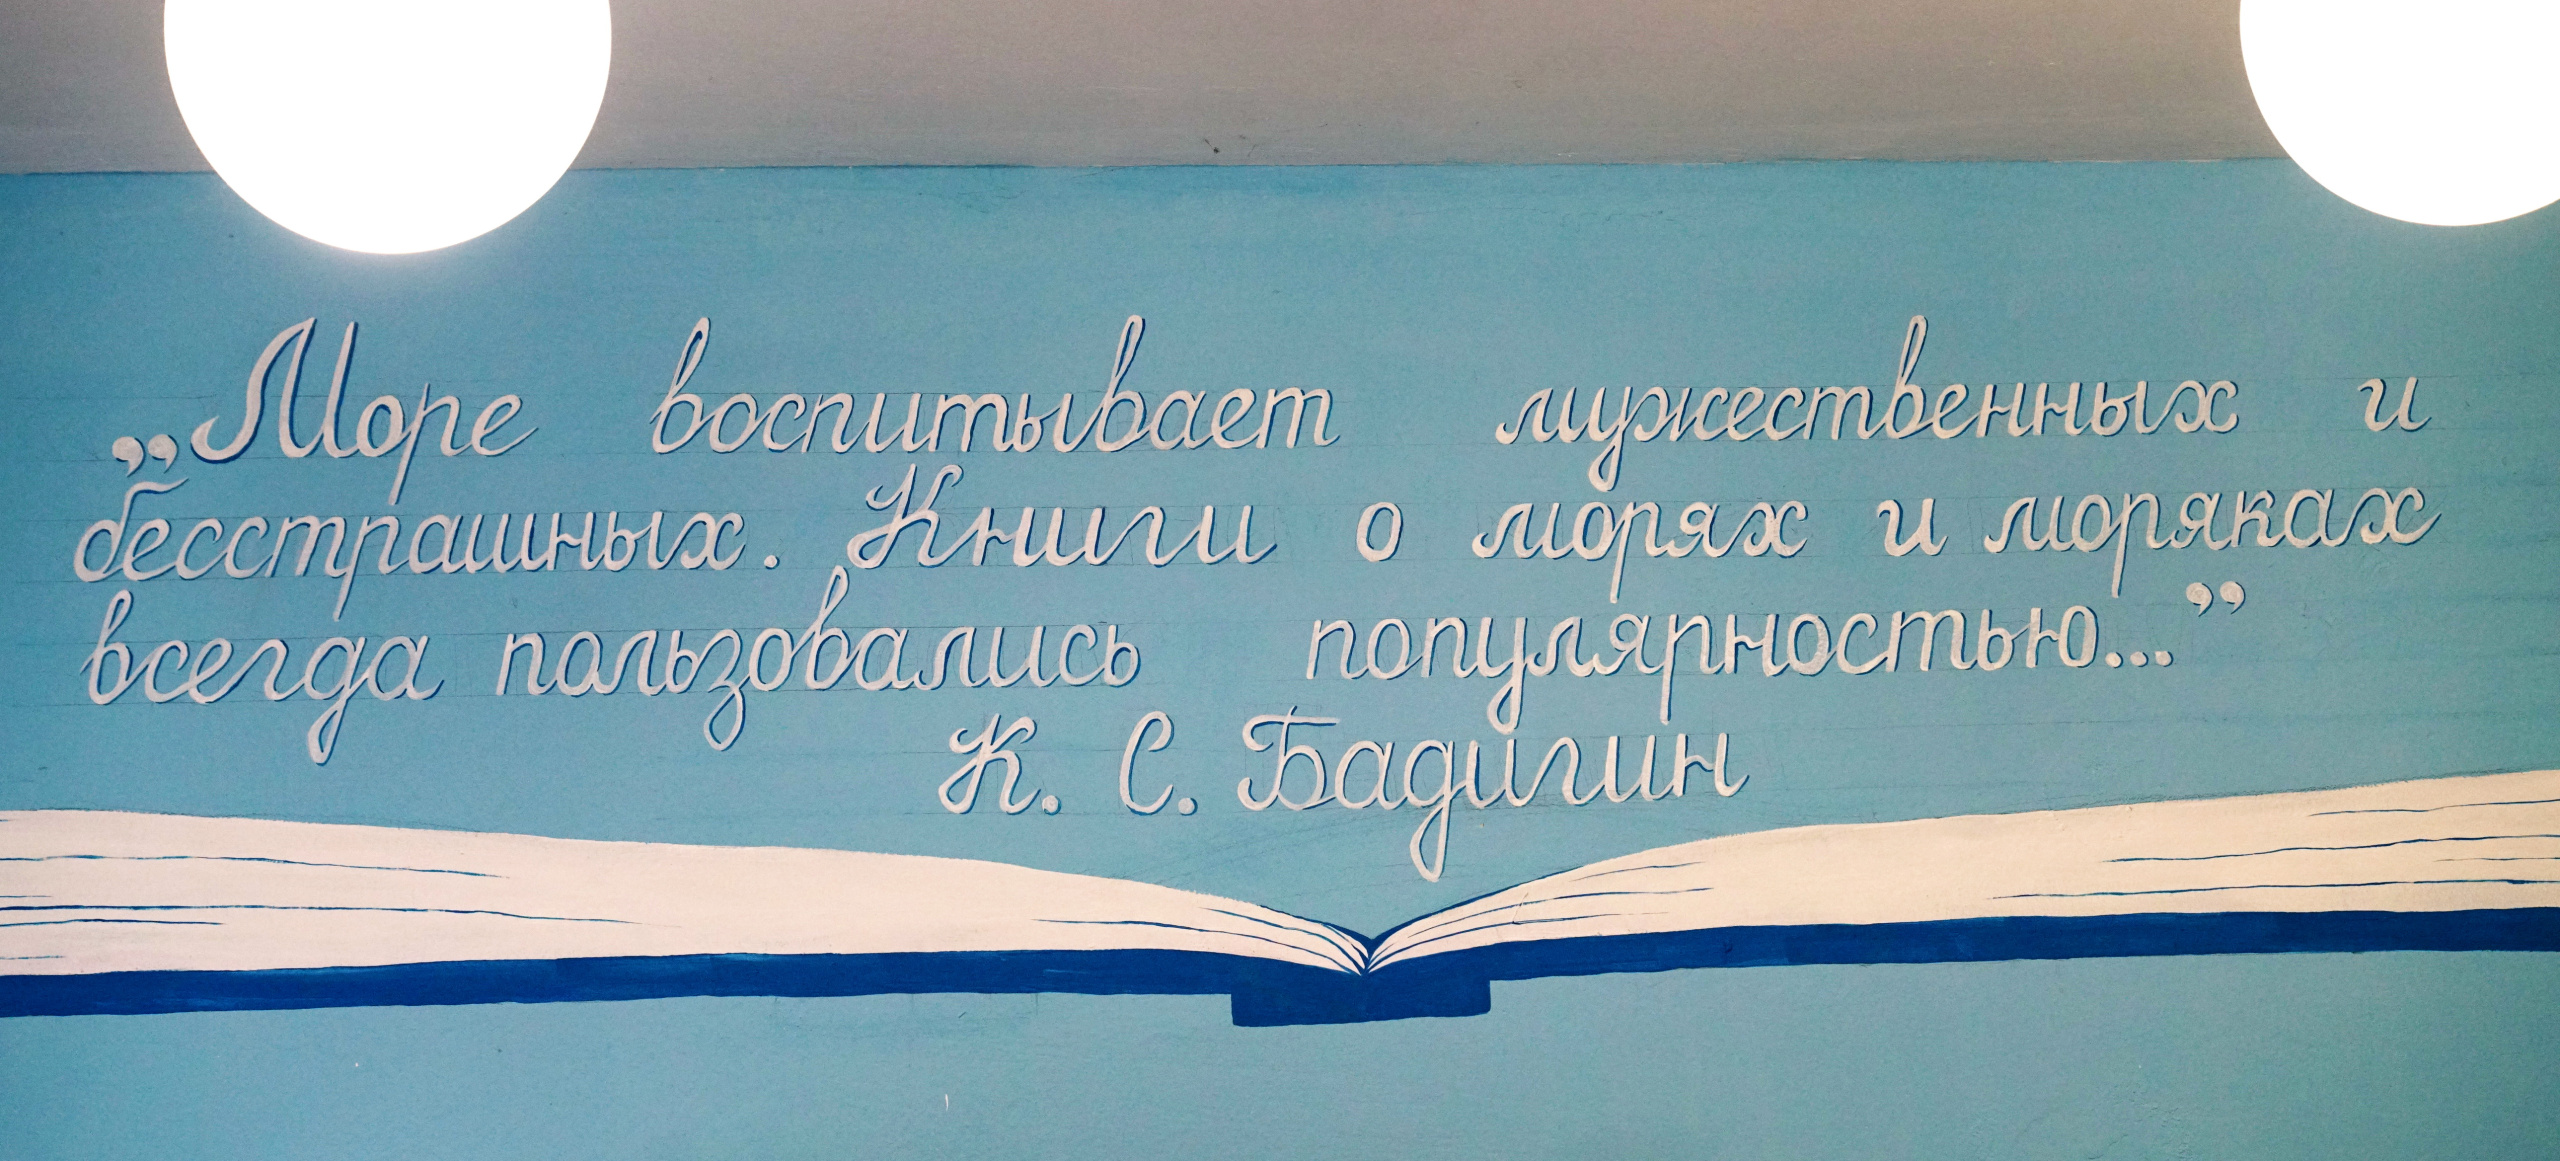 „Море воспитывает мужественных и
бесстрашных. Книги о морях и моряках
всегда пользовались популярностью...”
К. С. Бадигин